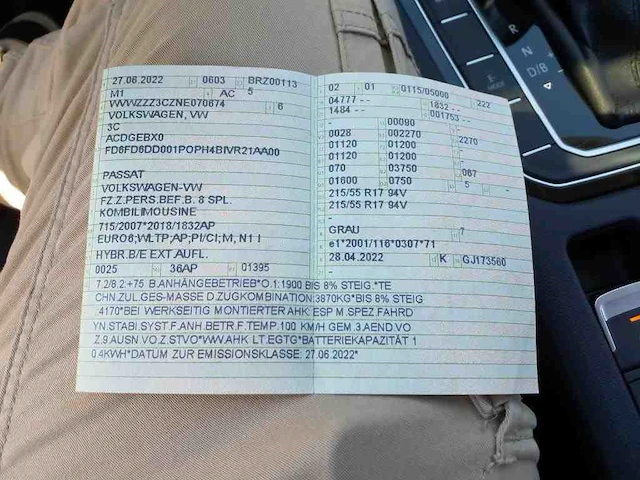 27.06.2022 0603 BRZ00113
M1 AC 5
WVWZZZ3CZNE070674 6
VOLKSWAGEN, VW
3C
ACDGEBX0
FD6FD6DD001POPH4BIVR21AA00
PASSAT
VOLKSWAGEN-VW
FZ.Z.PERS.BEF.B. 8 SPL.
KOMBILIMOUSINE
715/2007*2018/1832AP
EURO6;WLTP;AP;PI/CI; M, N1 I
HYBR.B/E EXT.AUFL.
0025 36AP 01395
02 01 0115/05000 222
04777 -- 1832 --
1484 -- 001753 --
- 00090
0028 002270 2270
01120 01200
01120 01200 -
070 03750 067
01600 0750 5
215/55 R17 94V
215/55 R17 94V
-
GRAU 7
e1*2001/116*0307*71
28.04.2022 K GJ173560
-
7.2/8.2:+75 B.ANHÄNGEBETRIEB*O.1:1900 BIS 8% STEIG.*TE
CHN.ZUL.GES-MASSE D.ZUGKOMBINATION:3870KG*BIS 8% STEIG
4170*BEI WERKSEITIG MONTIERTER AHK: ESP M.SPEZ.FAHRD
YN.STABI.SYST.F.ANH.BETR.F.TEMP.100 KM/H GEM.3.AEND.VO
Z.9.AUSN.VO.Z.STVO*VVW.AHK LT.EGTG*BATTERIEKAPAZITÄT 1
0.4KWH*DATUM ZUR EMISSIONSKLASSE: 27.06.2022*
R
N
D/B
E-MODE